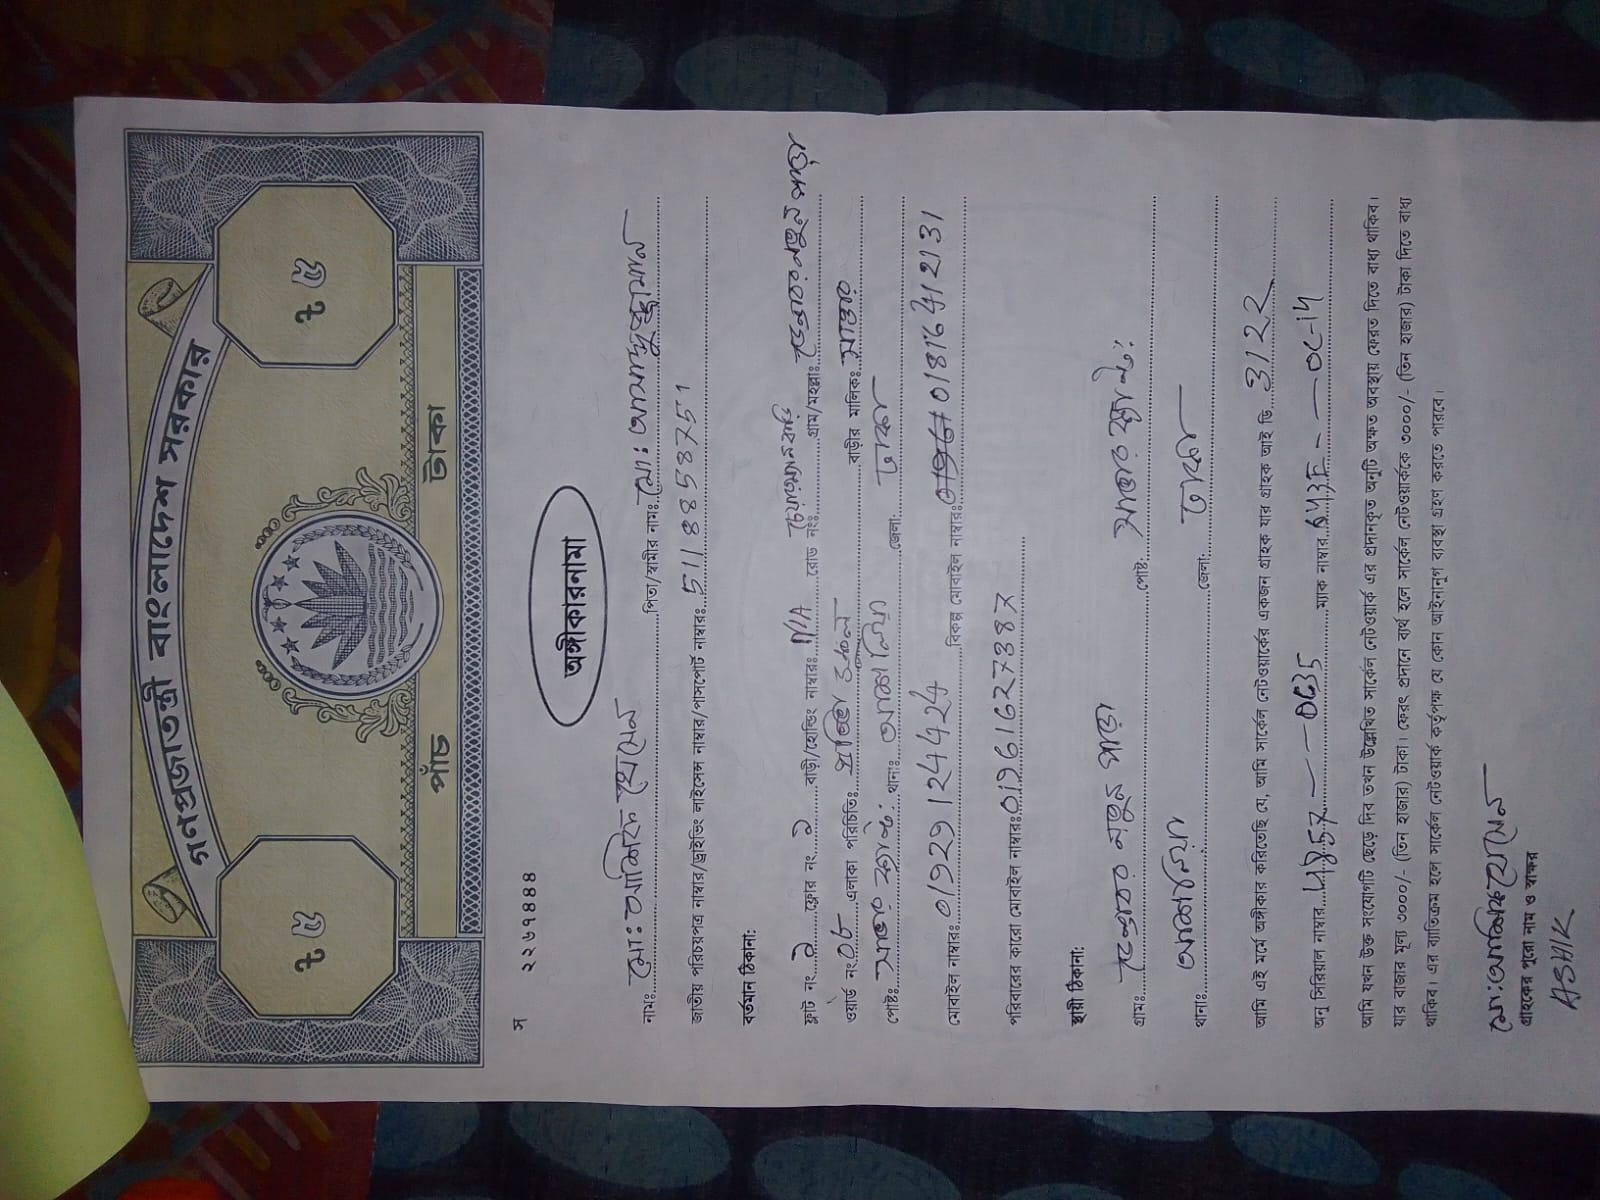 গণপ্রজাতন্ত্রী বাংলাদেশ সরকার
৳ ৫ ৳ ৫
পাঁচ টাকা
স ২২৬৭৪৪৪
অঙ্গীকারনামা
নামঃ মো: আশিক হোসেন পিতা/স্বামীর নাম: মো: আসাদুজ্জামান
জাতীয় পরিচয়পত্র নাম্বার/ড্রাইভিং লাইসেন্স নাম্বার/পাসপোর্ট নাম্বার: 5188858751
বর্তমান ঠিকানা:
ফ্লাট নং ২ ফ্লোর নং ২ বাড়ী/হোল্ডিং নাম্বার: N/A রোড নং: গ্রাম/মহল্লা: নতুন পাড়া
ওয়ার্ড নং ০৮ এলাকা পরিচিতি: বাড়ীর মালিক:
পোষ্ট: সাভার ক্যান্ট: থানা: আশুলিয়া জেলা: ঢাকা
মোবাইল নাম্বার: 01929124424 বিকল্প মোবাইল নাম্বার:
পরিবারের কারো মোবাইল নাম্বার:
স্থায়ী ঠিকানা:
গ্রাম: নতুন পাড়া পোষ্ট: সাভার ক্যান্ট:
থানা: আশুলিয়া জেলা: ঢাকা
আমি এই মর্মে অঙ্গীকার করিতেছি যে, আমি সার্কেল নেটওয়ার্কের একজন গ্রাহক যার গ্রাহক আই ডি 3122
অনু সিরিয়াল নাম্বার ম্যাক নাম্বার
আমি যখন উক্ত সংযোগটি ছেড়ে দিব তখন উল্লেখিত সার্কেল নেটওয়ার্ক এর প্রদানকৃত অনুটি অক্ষত অবস্থায় ফেরত দিতে বাধ্য থাকিব।
যার বাজার মূল্য ৩০০০/- (তিন হাজার) টাকা। ফেরৎ প্রদানে ব্যর্থ হলে সার্কেল নেটওয়ার্ককে ৩০০০/- (তিন হাজার) টাকা দিতে বাধ্য
থাকিব। এর ব্যতিক্রম হলে সার্কেল নেটওয়ার্ক কর্তৃপক্ষ যে কোন আইনানুগ ব্যবস্থা গ্রহণ করতে পারবে।
মো: আশিক হোসেন
গ্রাহকের পুরো নাম ও স্বাক্ষর
ASHIK